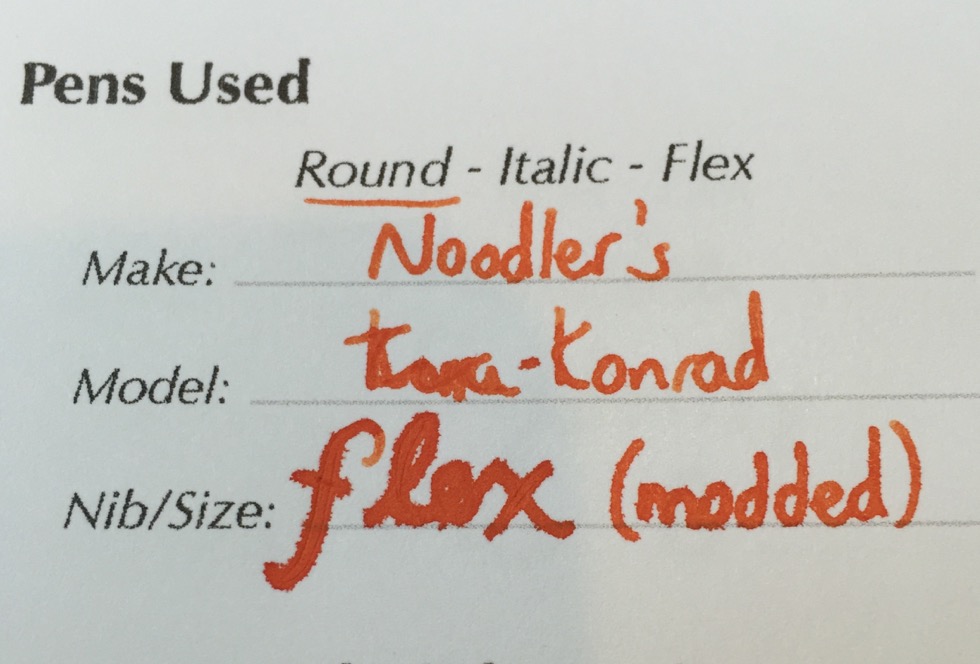 Pens Used
Round - Italic - Flex
Make: Noodler's
Model: -Konrad
Nib/Size: flex (modded)